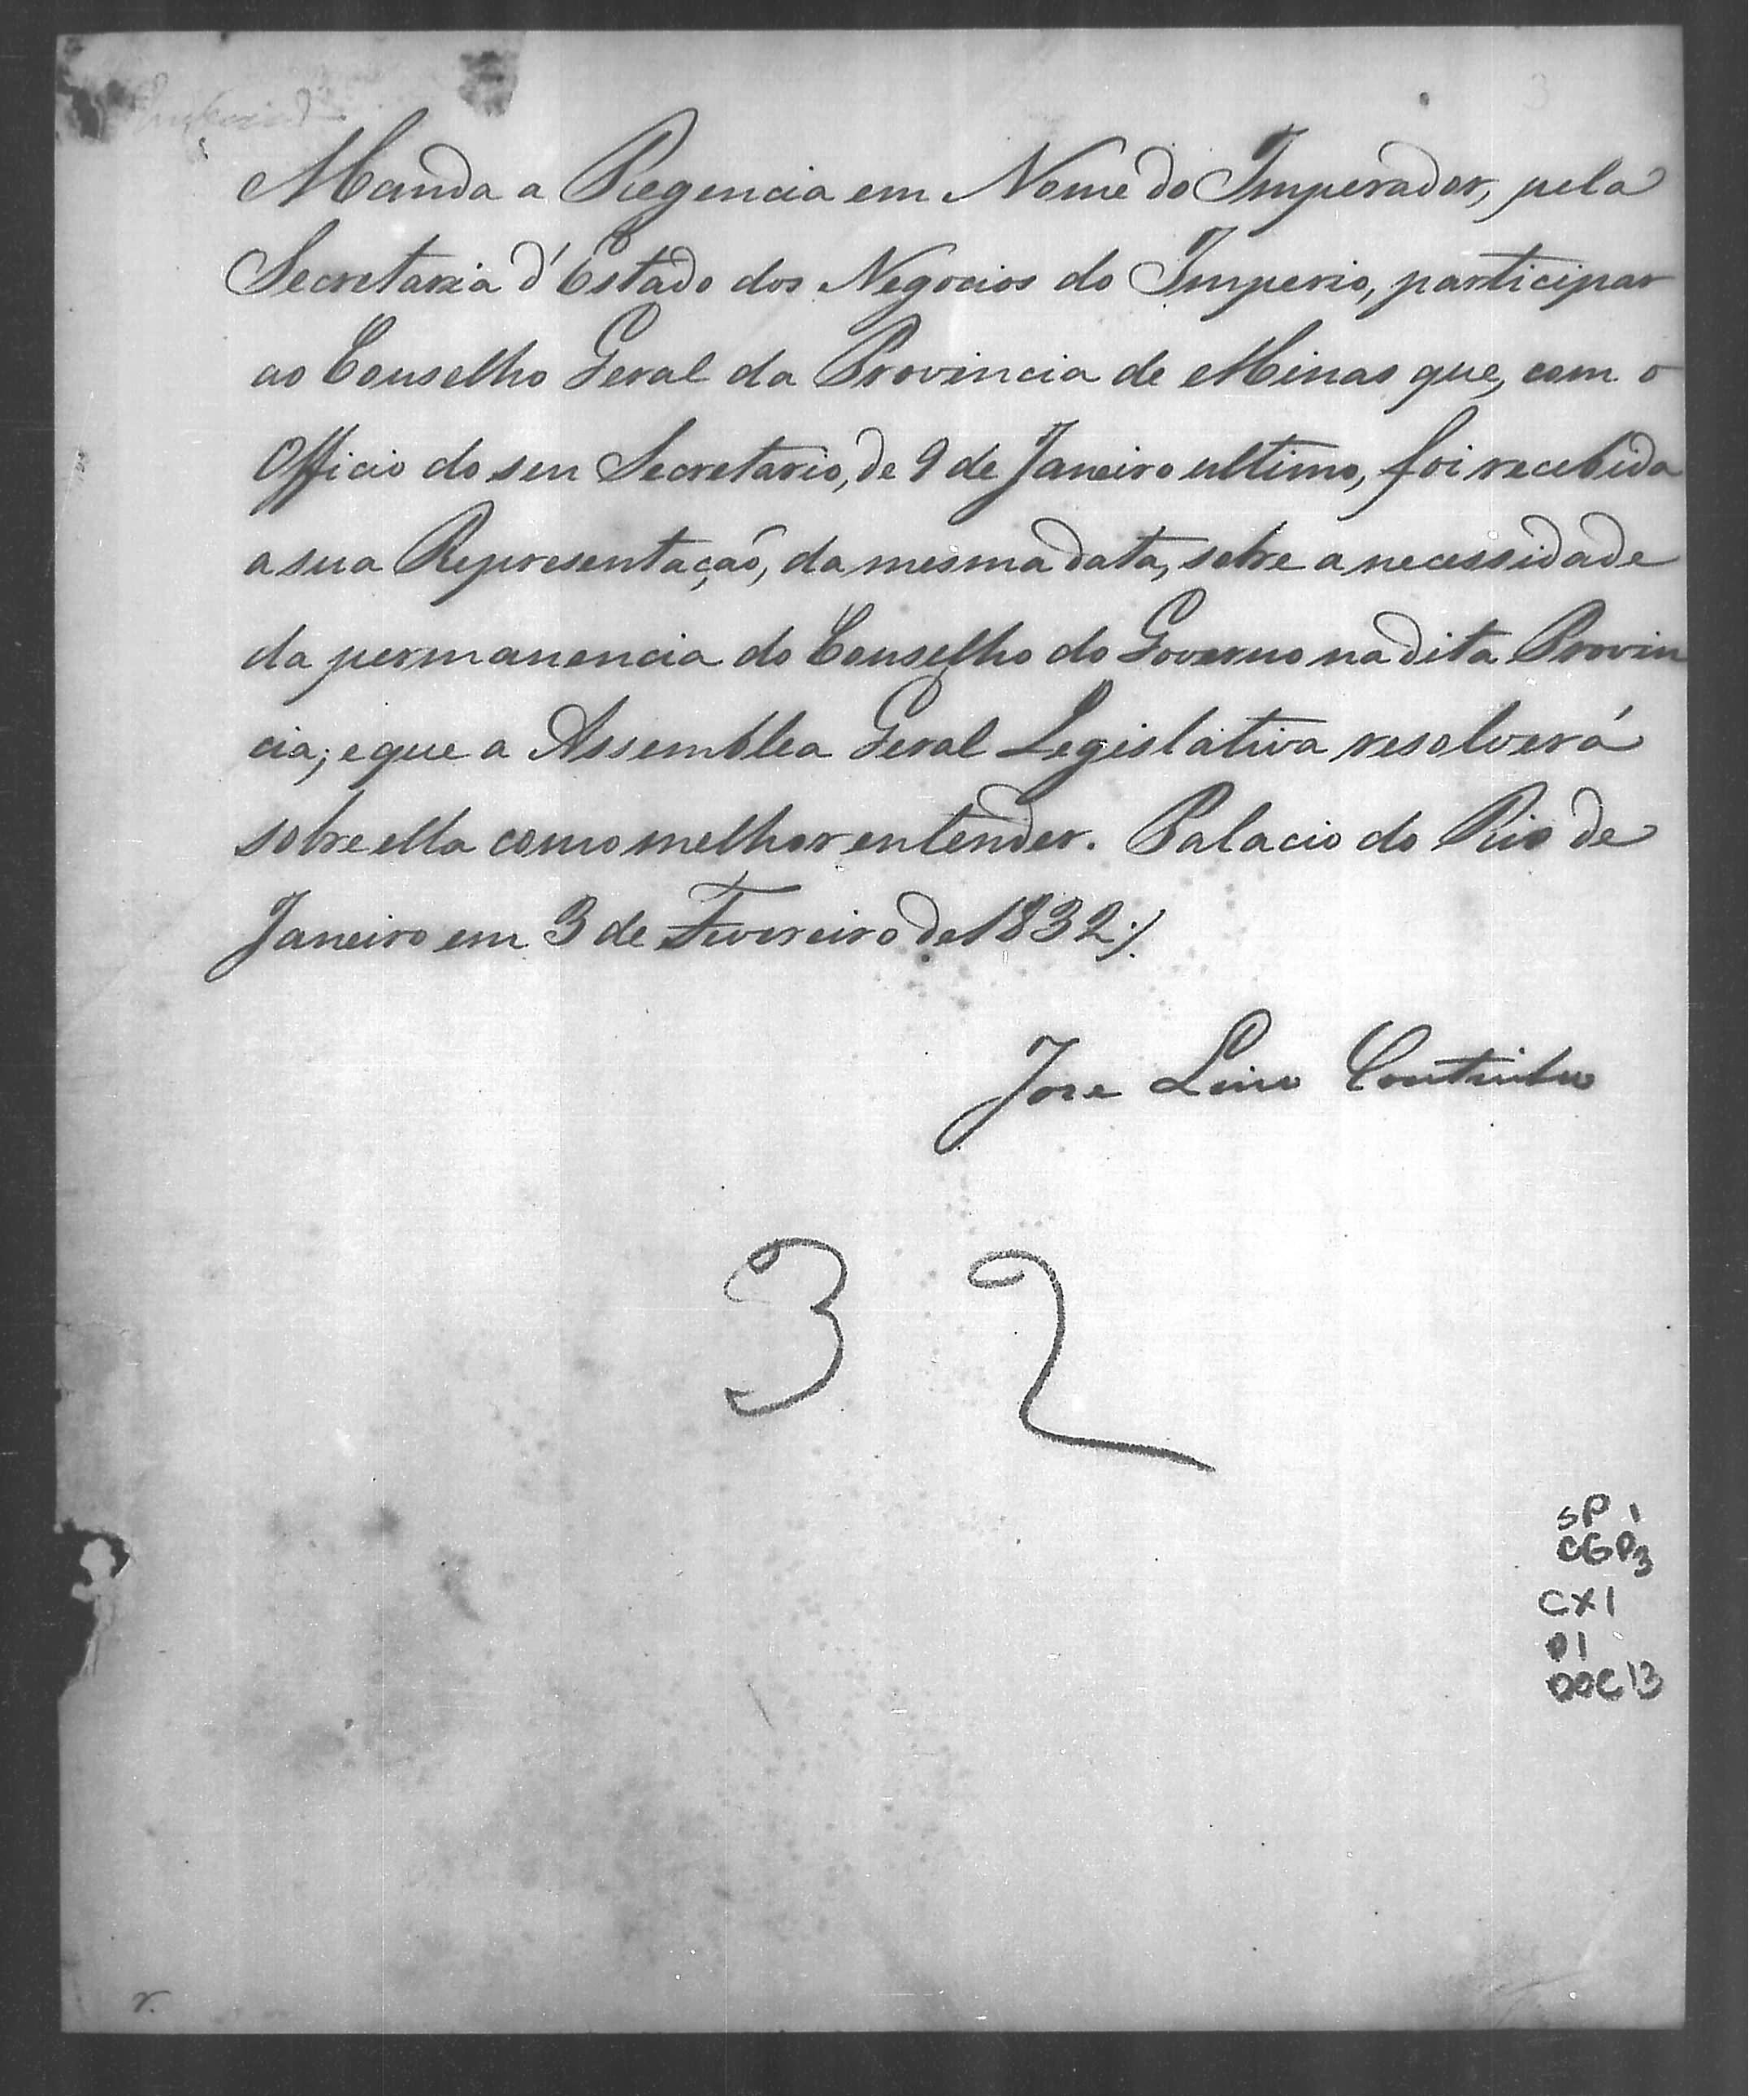 3
Manda a Regencia em Nome do Imperador, pela
Secretaria d'Estado dos Negocios do Imperio, participar
ao Conselho Geral da Provincia de Minas que, com o
Officio do seu Secretario, de 9 de Janeiro ultimo, foi recebida
a sua Representação, da mesma data, sobre a necessidade
da permanencia do Conselho do Governo na dita Provin
cia; e que a Assemblea Geral Legislativa resolverá
sobre ella como melhor entender. Palacio do Rio de
Janeiro em 3 de Fevereiro de 1832./.
Jose Lino Coutinho
32
SP 1
CGP3
CX1
P1
DOC 13
r.